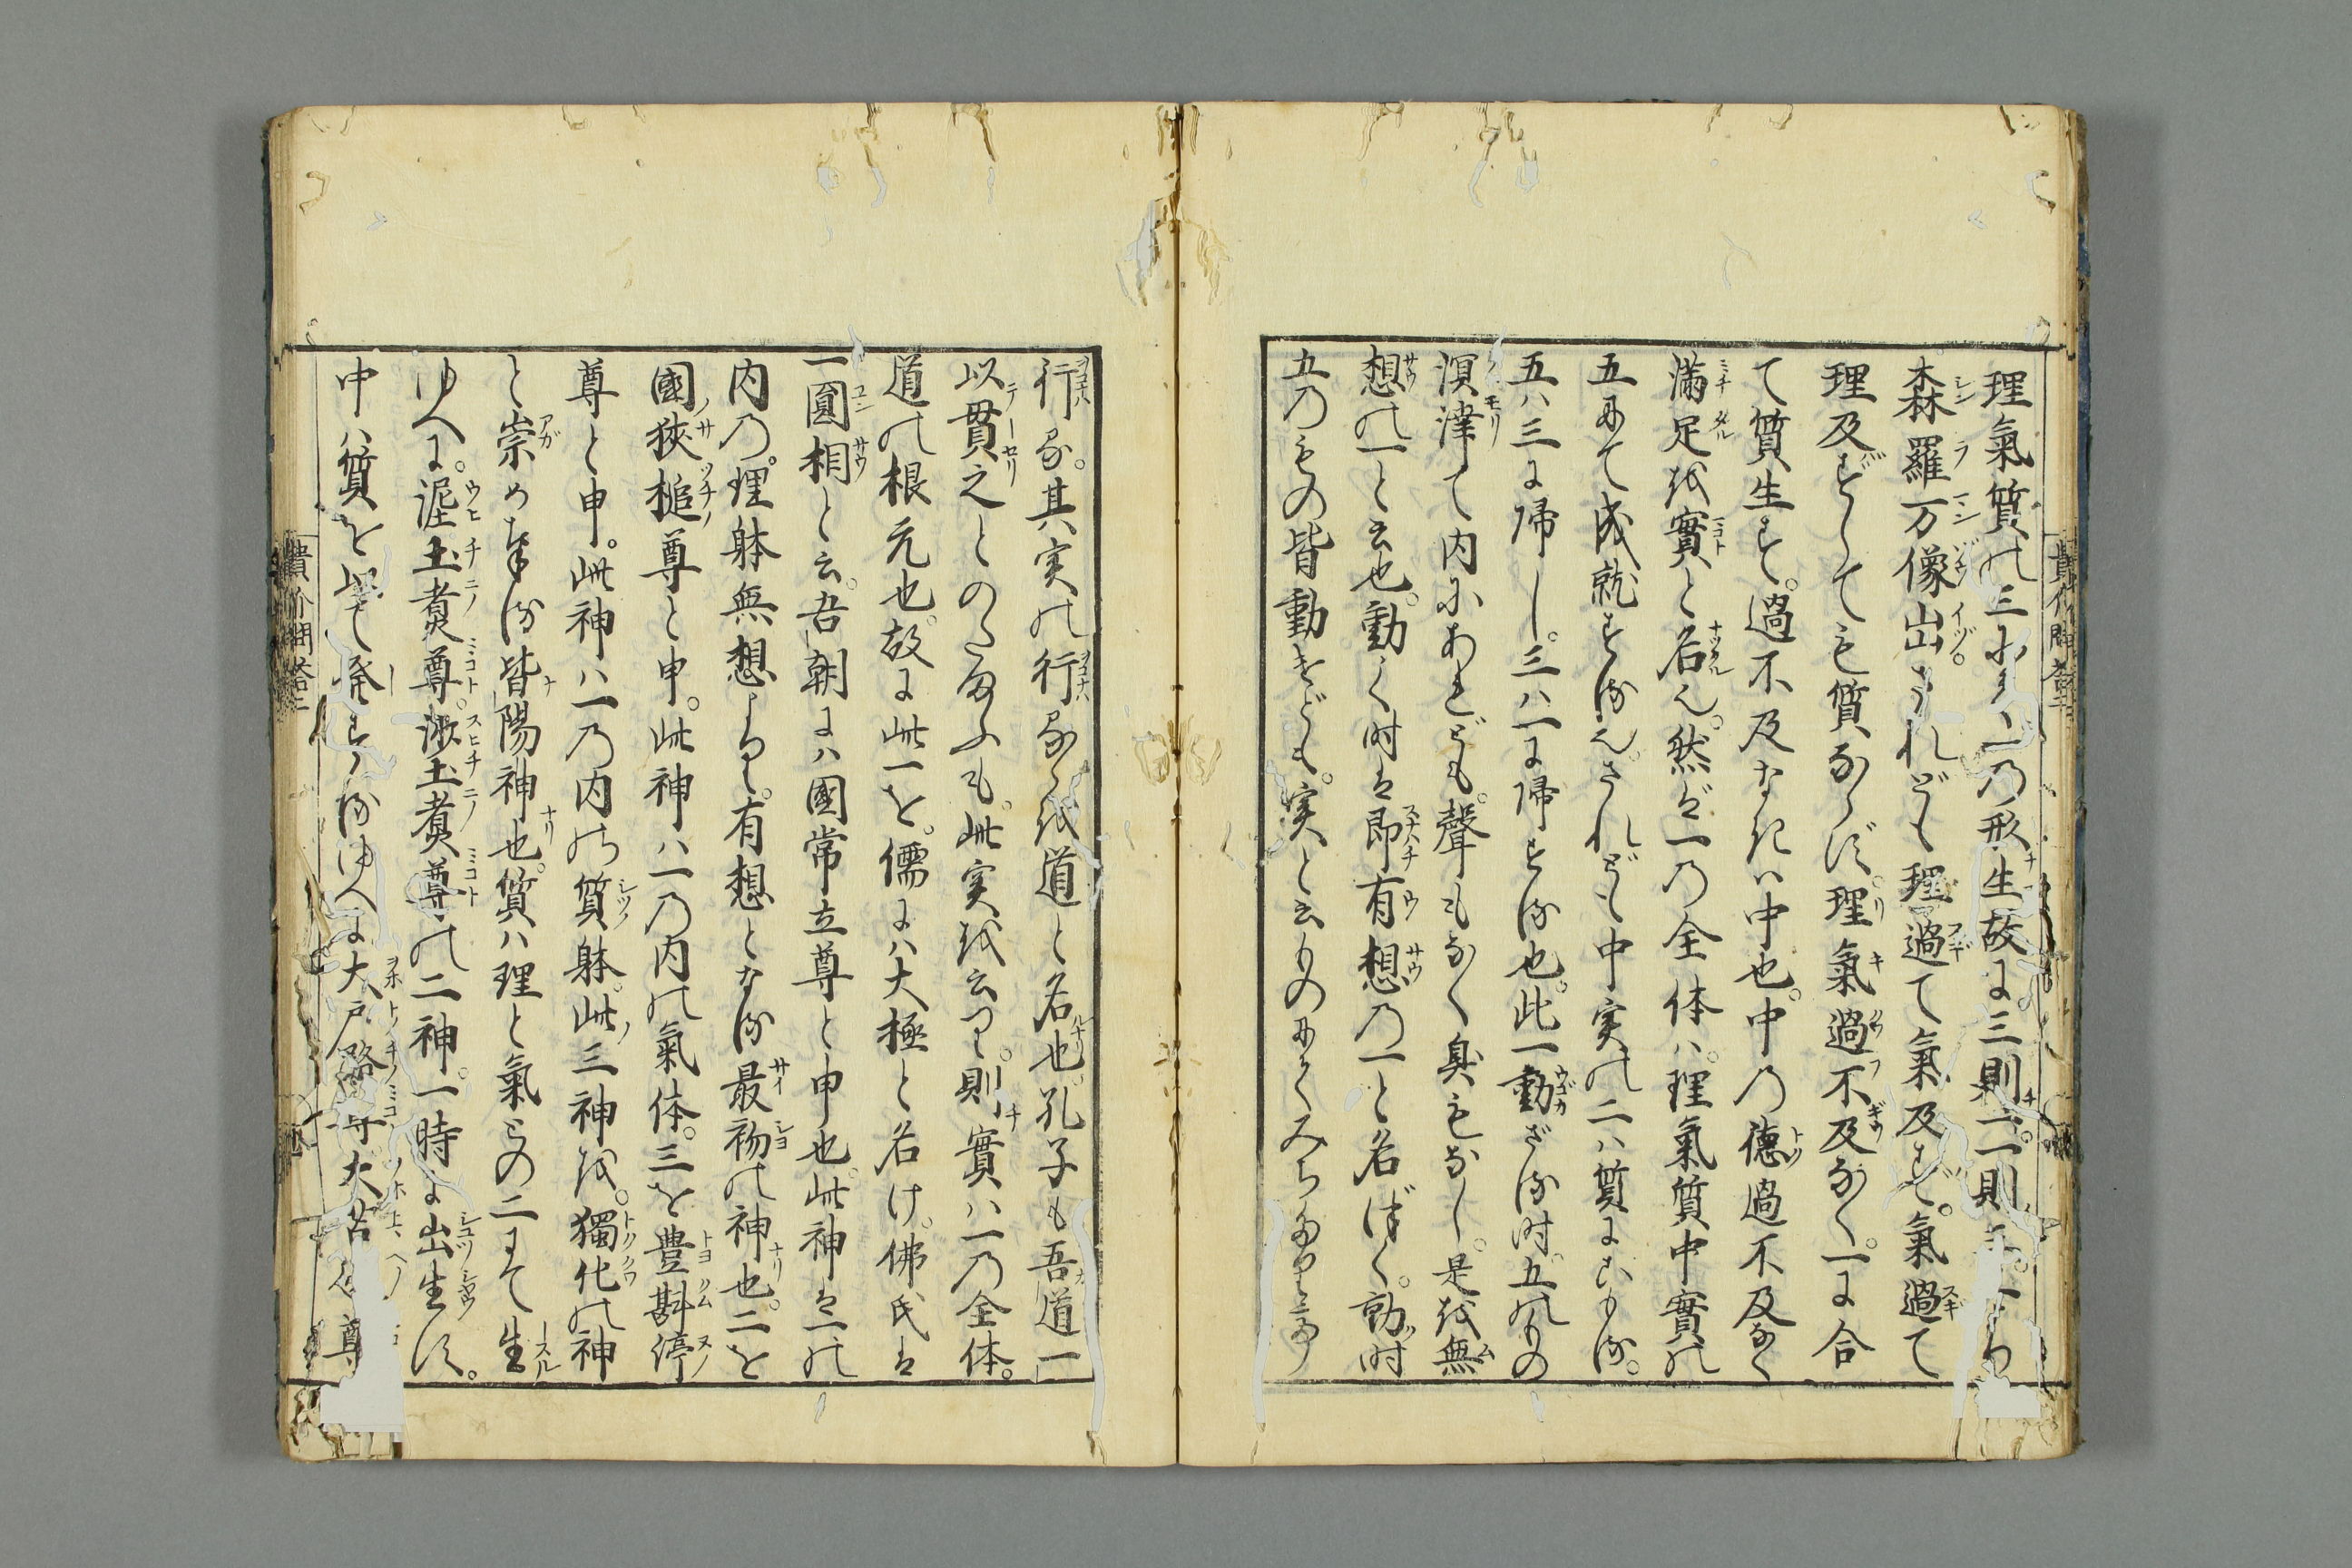 理氣質の三ツハ一乃形生故に三則一則
森羅万像出されども理過て氣及ばず。氣過て
理及ずしても質ならず。理氣過不及なく。一に合
て質生ず。過不及なきハ中也。中乃德過不及なく
滿足を實と名く。然ば一乃全体ハ。理氣質中實の
五にて成就する也。されども中実の二ハ質にこもる。
五ハ三に帰し。三ハ一に帰する也。此一動ざる时。五のもの
溟涬て内にあれども。聲もなく臭もなし。是を無
想の一と云也。動く时は即有想乃一と名ばく。動时
五乃もの皆動けども。実と云ものにくみち
行る。其実の行るゝを道と名也。孔子も吾道一
以貫之とのたまふも。此実を云り。則實ハ一乃全体。
道の根元也。故に此一を。儒にハ大極と名け。佛氏は
一圓相と云。吾朝にハ國常立尊と申也。此神は一の
内乃。理躰無想より。有想となる最初の神也。二を
國狹槌尊と申。此神ハ一乃内の氣体。三を豊斟渟
尊と申。此神ハ一乃内の質躰。此三神を。獨化の神
と崇め奉る皆陽神也。質ハ理と氣との二にて生
ゆへに。泥土煑尊。沙土煑尊の二神。一時に出生す。
中ハ質を以て発するゆへに大戸路尊大苫尊